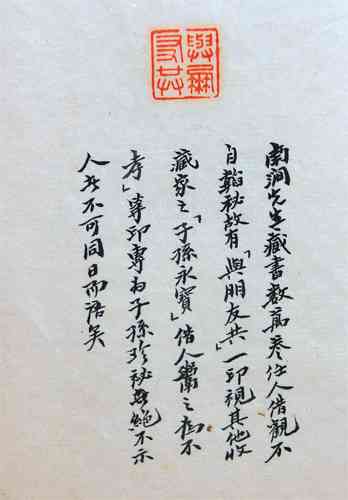 與朋友共
南澗先生藏書數萬卷任人借觀不
自韜秘故有「與朋友共」一印視其他收
藏家之「子孫永寶」借人鬻之為不
孝」等印專為子孫珍秘絕不示
人者不可同日而語矣